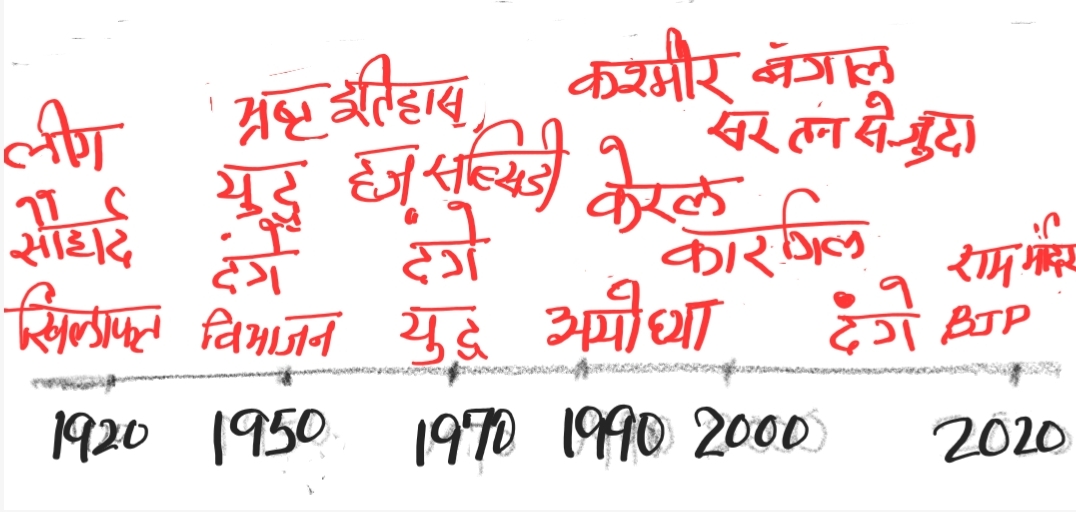 कश्मीर बंगाल
भ्रष्ट इतिहास,
सर तन से जुदा
लीग
युद्ध हज सब्सिडी
केरल
सौहार्द
दंगे दंगे
कारगिल
राम मंदिर
खिलाफत विभाजन युद्ध अयोध्या दंगे BJP
1920 1950 1970 1990 2000 2020